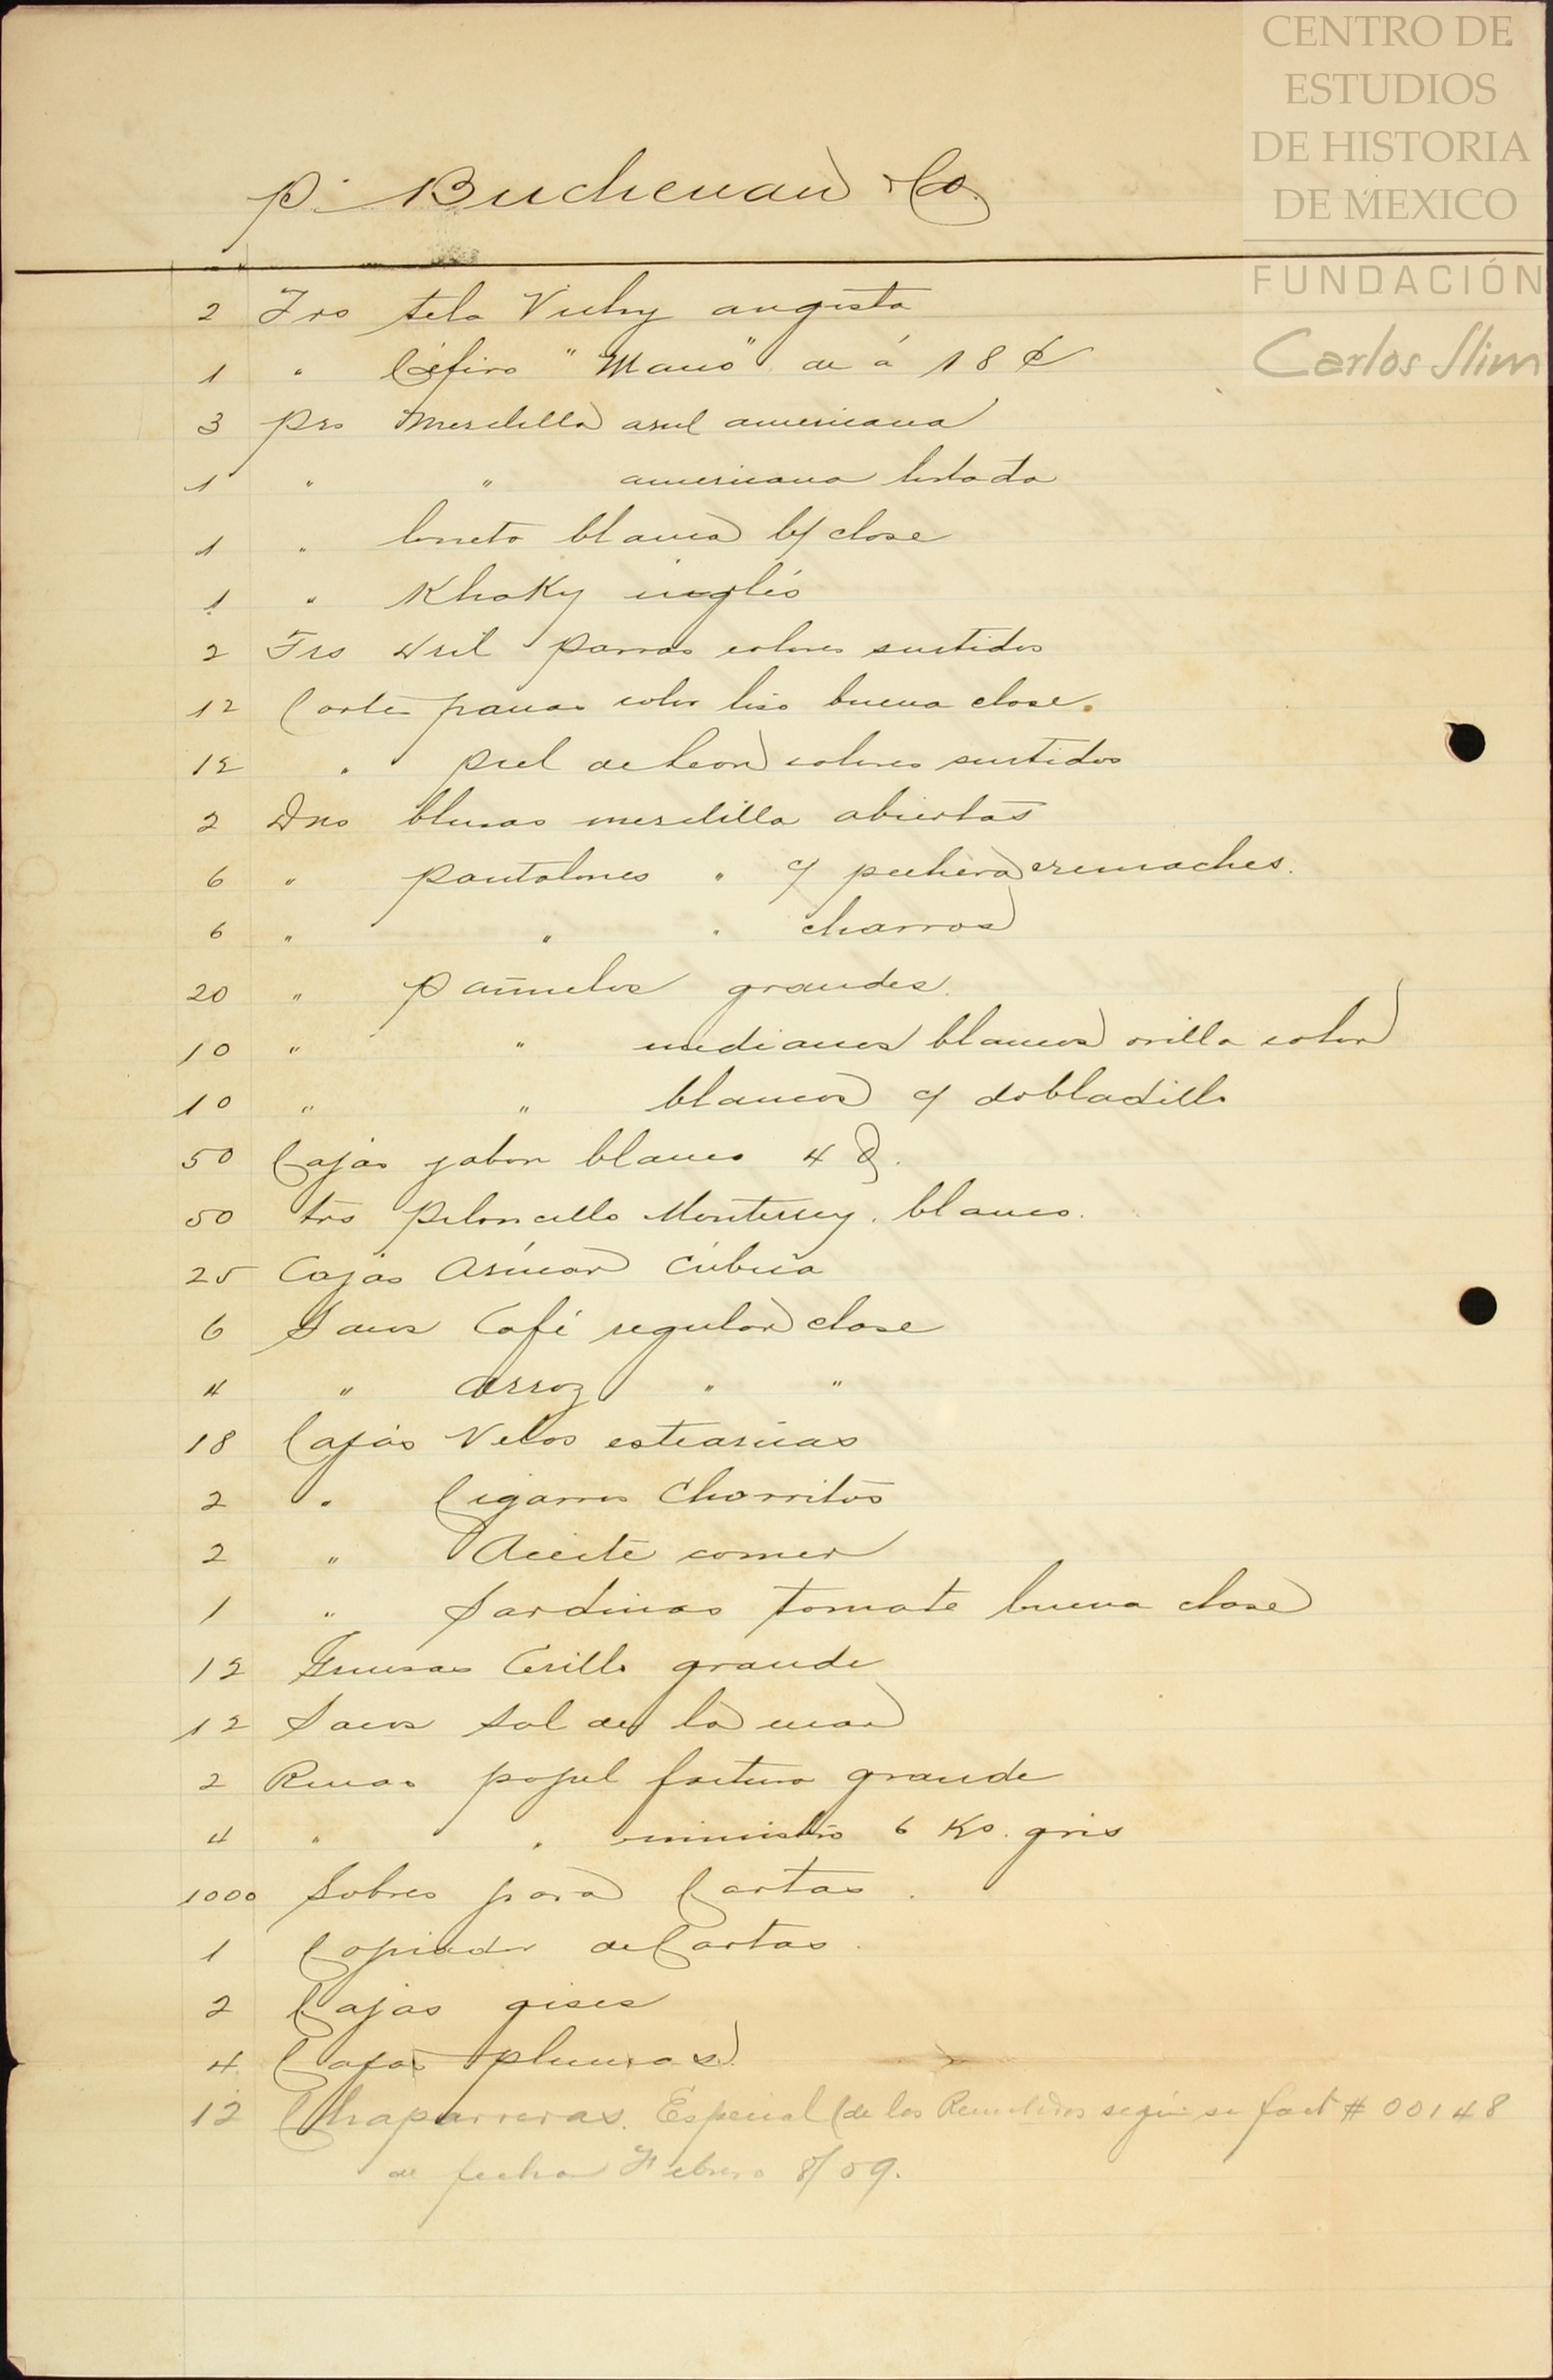 CENTRO DE
ESTUDIOS
DE HISTORIA
DE MEXICO
FUNDACIÓN
Carlos Slim
P. Buchenau & Co.
2 Trs tela Vichy angosta
1 " Céfiro " " de á 18 ¢
3 pzs Mezclilla azul americana
1 " " americana listada
1 " loneta blanca b/ clase
1 " Khaky inglés
2 Trs Dril Parras colores surtidos
12 Cortes panas color liso buena clase.
12 " piel de leon colores surtidos
2 Dns blusas mezclilla abiertas
6 " pantalones " c/ pechera remaches.
6 " " " charros
20 " pañuelos grandes.
10 " " medianos blancos orilla color
10 " " blancos c/ dobladillo
50 Cajas jabon blanco 4
50 trs Piloncillo Monterrey, blanco.
25 Cajas Azúcar Cúbica
6 Sacos Café regular clase
4 " Arroz " "
18 Cajas Velas estearicas
2 " Cigarros Charritos
2 " Aceite comer
1 " Sardinas tomate buena clase
12 Gruesas Cerillo grande
12 Sacos Sal de la mar
2 Rmas papel factura grande
4 " " ministro 6 Ks. gris
1000 Sobres para Cartas.
1 Copiador de Cartas.
2 Cajas gises
4 Cajas plumas.
12 Chaparreras. Especial (de los Remitidos según su fact # 00148
de fecha Febrero 8/09.